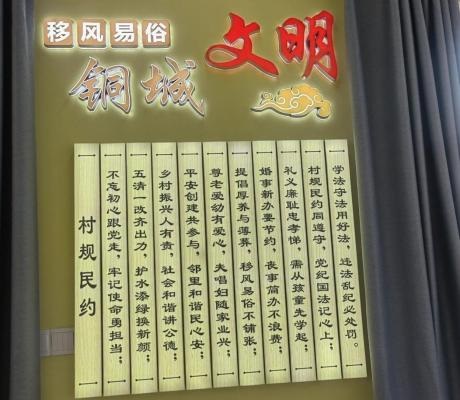 移风易俗
铜城
文明
村规民约
不忘初心跟党走，牢记使命勇担当；
五清一改齐出力，护水添绿换新颜；
乡村振兴人有责，社会和谐讲公德；
平安创建共参与，邻里和谐民心安；
尊老爱幼有爱心，夫唱妇随家业兴；
提倡厚养与薄葬，移风易俗不铺张；
婚事新办要节约，丧事简办不浪费；
礼义廉耻忠孝悌，需从孩童先学起；
村规民约同遵守，党纪国法记心上；
学法守法用好法，违法乱纪必处罚。